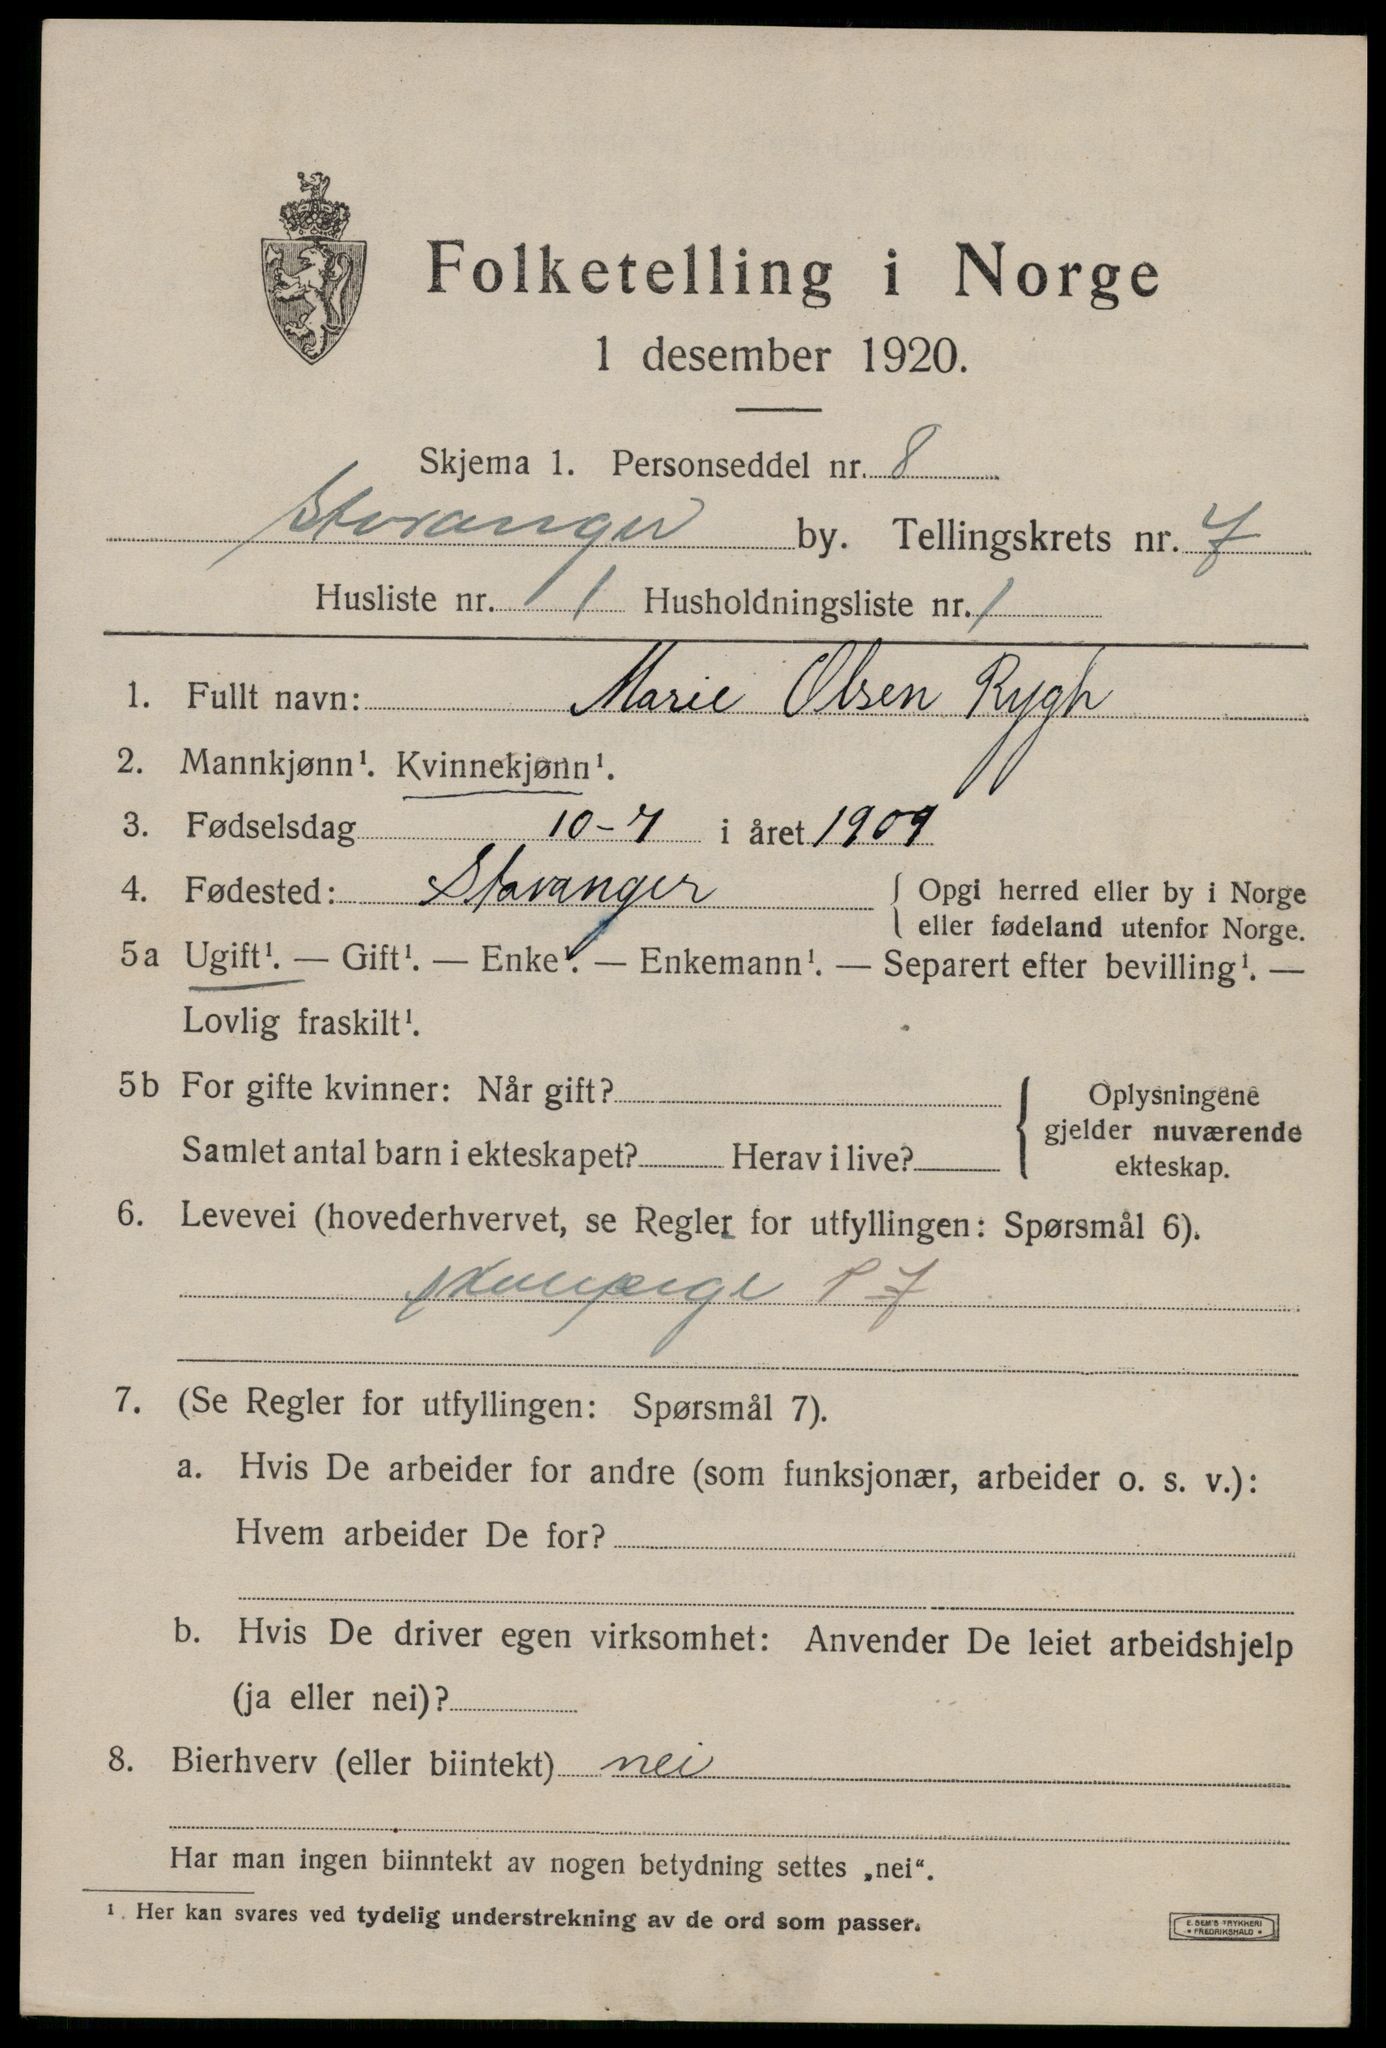 Folketelling i Norge
1 desember 1920.
Skjema 1. Personseddel nr. 8
Stavanger by. Tellingskrets nr. 7
Husliste nr. 1 Husholdningsliste nr. 1
1. Fullt navn: Marie Olsen Rygh
2. Mannkjønn¹. Kvinnekjønn¹.
3. Fødselsdag 10-7 i året 1909
4. Fødested: Stavanger { Opgi herred eller by i Norge
eller fødeland utenfor Norge.
5a Ugift¹. — Gift¹. — Enke¹. — Enkemann¹. — Separert efter bevilling¹. —
Lovlig fraskilt¹.
5b For gifte kvinner: Når gift?
Samlet antal barn i ekteskapet? Herav i live?
{ Oplysningene
gjelder nuværende
ekteskap.
6. Levevei (hovederhvervet, se Regler for utfyllingen: Spørsmål 6).
7. (Se Regler for utfyllingen: Spørsmål 7).
a. Hvis De arbeider for andre (som funksjonær, arbeider o. s. v.):
Hvem arbeider De for?
b. Hvis De driver egen virksomhet: Anvender De leiet arbeidshjelp
(ja eller nei)?
8. Bierhverv (eller biintekt) nei
Har man ingen biinntekt av nogen betydning settes „nei“.
¹. Her kan svares ved tydelig understrekning av de ord som passer.
E. SEM'S TRYKKERI
• FREDRIKSHALD •